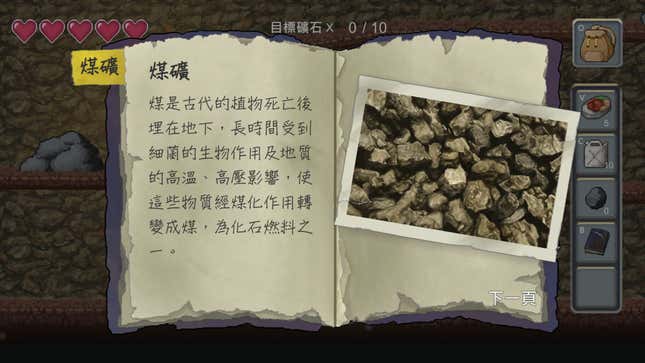 目標礦石 X 0 / 10
煤礦
煤礦
煤是古代的植物死亡後
埋在地下，長時間受到
細菌的生物作用及地質
的高溫、高壓影響，使
這些物質經煤化作用轉
變成煤，為化石燃料之
一。
下一頁
V
5
C
10
0
B